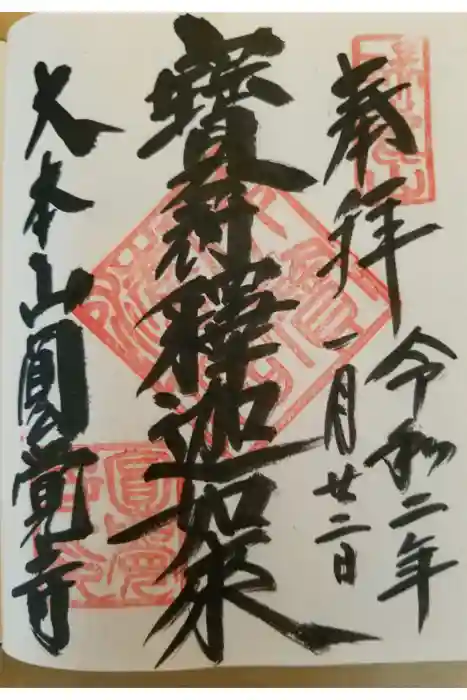 奉拝
令和二年
一月廿二日
寶冠釋迦如来
大本山圓覚寺